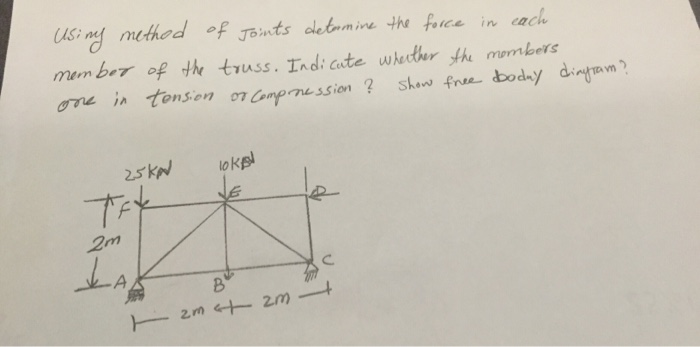 Using method of Joints determine the force in each
member of the truss. Indicate whether the mombers
one in tension or Compression ? Show free boday diagram?
25KN 10KN
F E D
2m
A B C
2m 2m